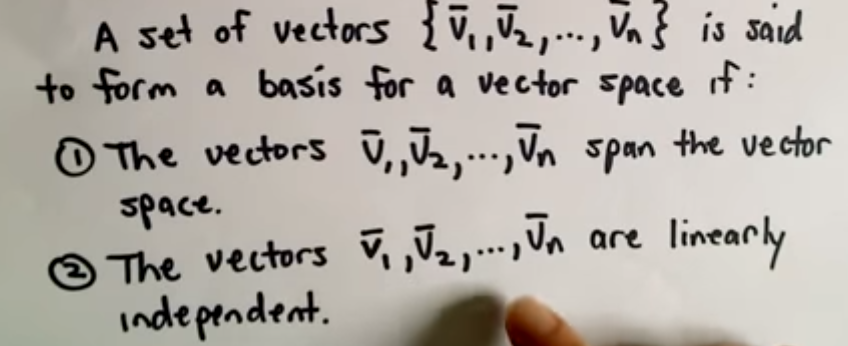 A set of vectors {v̄₁, v̄₂, ..., v̄ₙ} is said
to form a basis for a vector space if:
① The vectors v̄₁, v̄₂, ..., v̄ₙ span the vector
space.
② The vectors v̄₁, v̄₂, ..., v̄ₙ are linearly
independent.